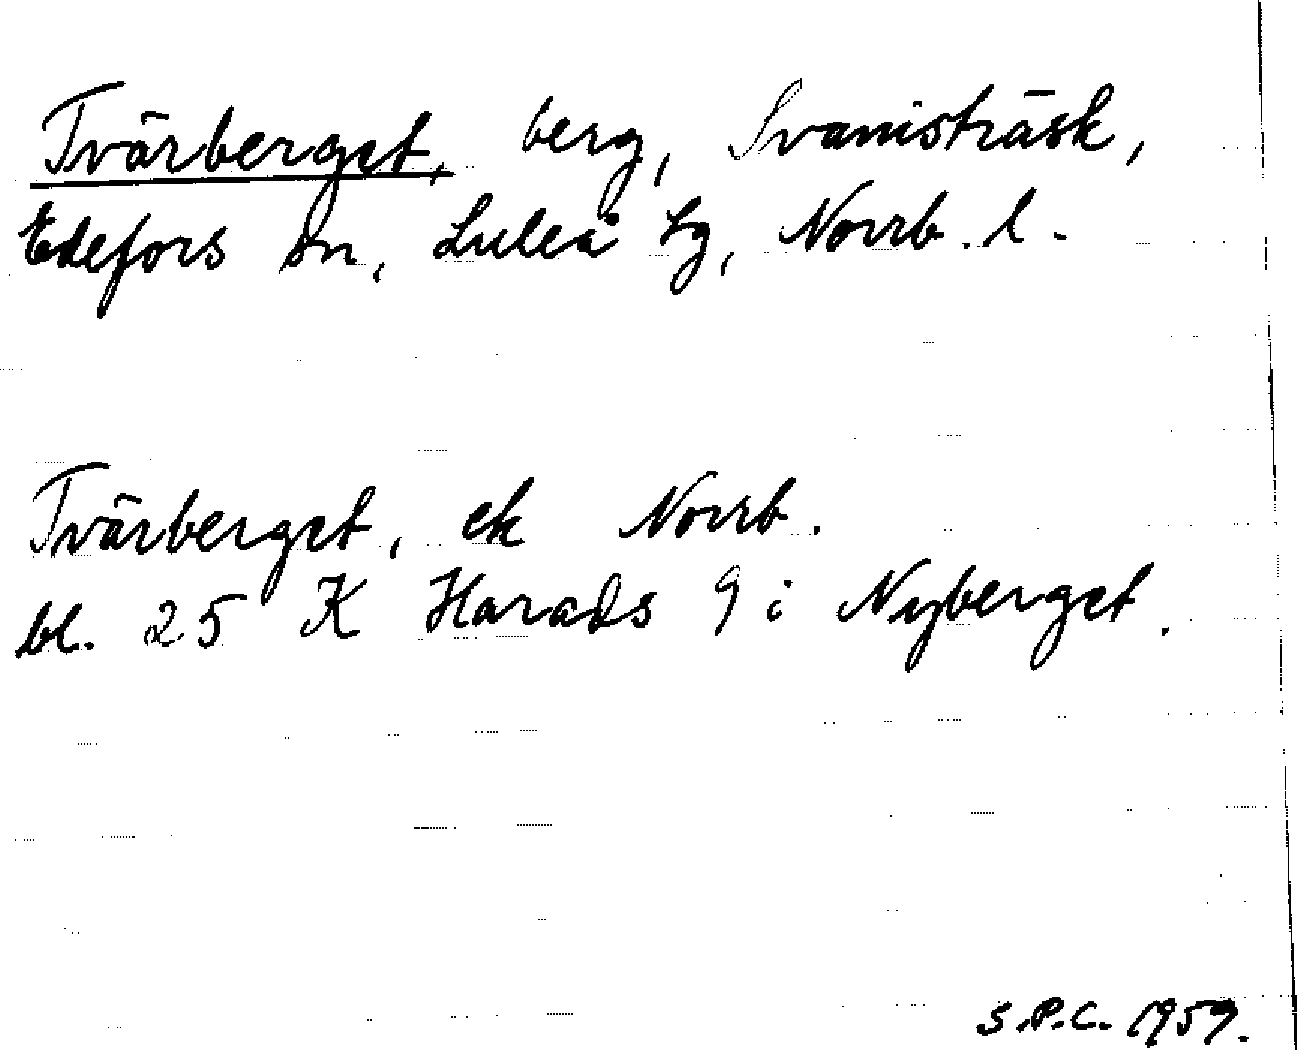 Tvärberget, berg, Svanisträsk,
Edefors sn, Luleå tg, Norrb. l.
Tvärberget, ek Norrb.
bl. 25 K Harads 9 i Nyberget.
S.P.C. 1959.